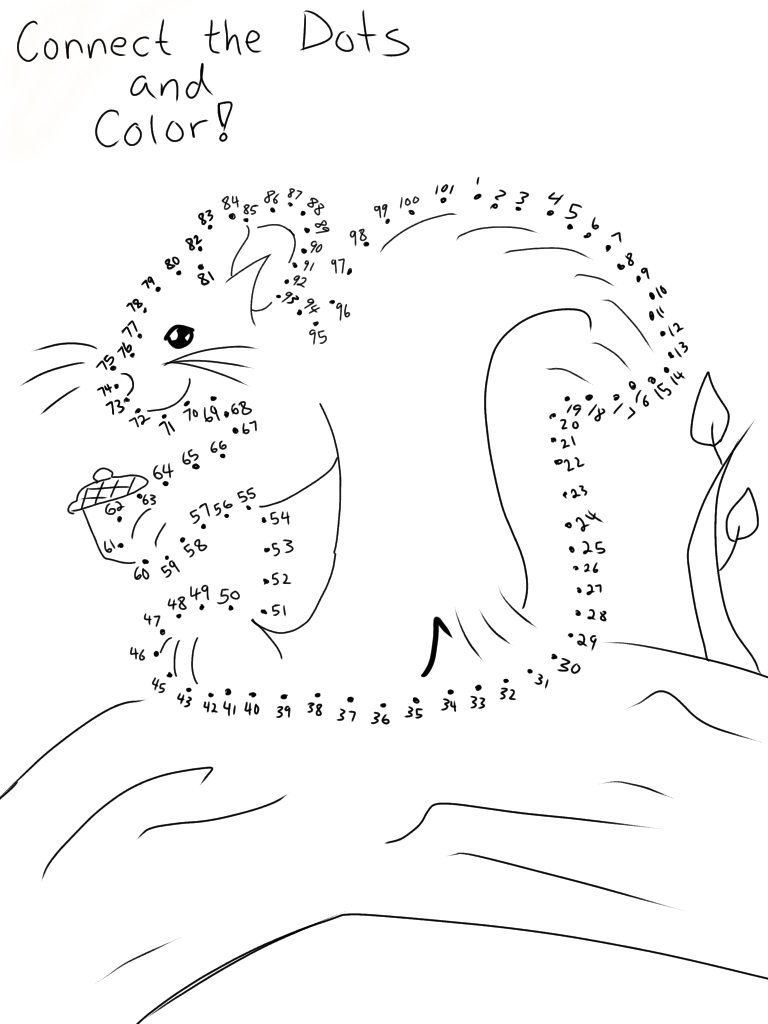 Connect the Dots
and
Color!
1
2
3
4
5
6
7
8
9
10
11
12
13
14
15
16
17
18
19
20
21
22
23
24
25
26
27
28
29
30
31
32
33
34
35
36
37
38
39
40
41
42
43
45
46
47
48
49
50
51
52
53
54
55
56
57
58
59
60
61
62
63
64
65
66
67
68
69
70
71
72
73
74
75
76
77
78
79
80
81
82
83
84
85
86
87
88
89
90
91
92
93
94
95
96
97
98
99
100
101